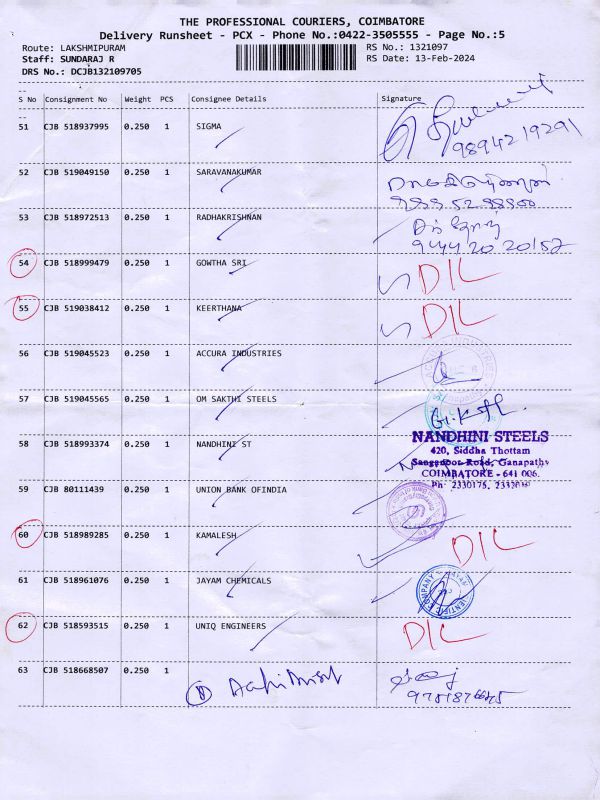 THE PROFESSIONAL COURIERS, COIMBATORE
Delivery Runsheet - PCX - Phone No.:0422-3505555 - Page No.:5
Route: LAKSHMIPURAM RS No.: 1321097
Staff: SUNDARAJ R RS Date: 13-Feb-2024
DRS No.: DCJB132109705
S No Consignment No Weight PCS Consignee Details Signature
51 CJB 518937995 0.250 1 SIGMA
9894219291
52 CJB 519049150 0.250 1 SARAVANAKUMAR
53 CJB 518972513 0.250 1 RADHAKRISHNAN
944420 20157
54 CJB 518999479 0.250 1 GOWTHA SRI DIL
55 CJB 519038412 0.250 1 KEERTHANA DIL
56 CJB 519045523 0.250 1 ACCURA INDUSTRIES
57 CJB 519045565 0.250 1 OM SAKTHI STEELS
58 CJB 518993374 0.250 1 NANDHINI ST
NANDHINI STEELS
420, Siddha Thottam
Sanganoor Road, Ganapathy
COIMBATORE - 641 006.
Ph: 2330175,
59 CJB 80111439 0.250 1 UNION BANK OFINDIA
60 CJB 518989285 0.250 1 KAMALESH DIL
61 CJB 518961076 0.250 1 JAYAM CHEMICALS
62 CJB 518593515 0.250 1 UNIQ ENGINEERS DIL
63 CJB 518668507 0.250 1